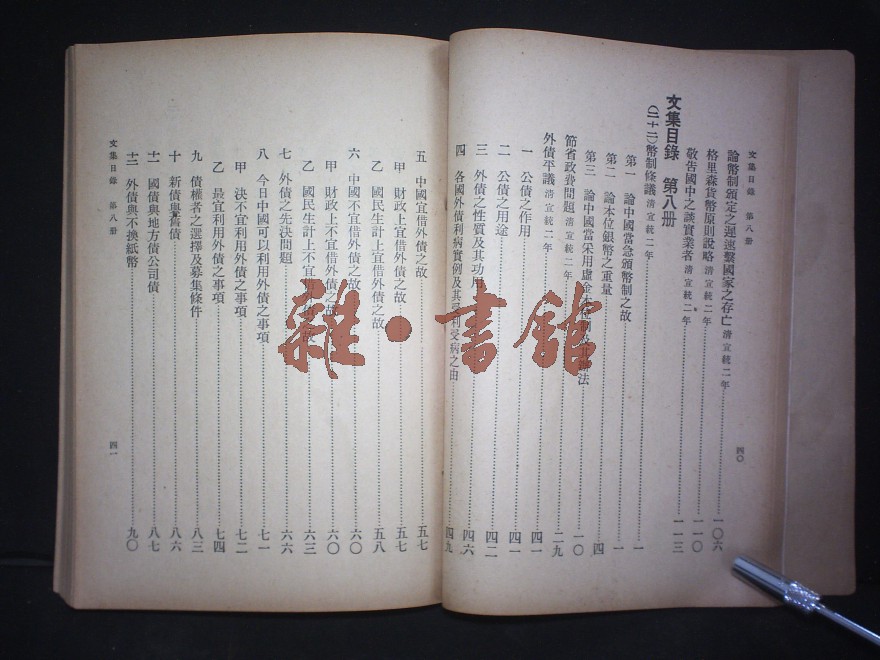 文集目錄　第八册
四〇
論幣制頒定之遲速繫國家之存亡 清宣統二年 一〇六
格里森貨幣原則說略 清宣統二年 一一〇
敬告國中之談實業者 清宣統二年 一一三
文集目錄　第八册
(二十二)幣制條議 清宣統二年 一
第一　論中國當急頒幣制之故 一
第二　論本位銀幣之重量 四
第三　論中國當采用虛金本位制及其辦法 一〇
節省政費問題 清宣統二年 二九
外債平議 清宣統二年
一　公債之作用 四一
二　公債之用途 四二
三　外債之性質及其功用 四六
四　各國外債利病實例及其受利受病之由 四九
五　中國宜借外債之故 五七
甲　財政上宜借外債之故 五七
乙　國民生計上宜借外債之故 五八
六　中國不宜借外債之故 六〇
甲　財政上不宜借外債之故 六〇
乙　國民生計上不宜 之故 六三
七　外債之先決問題 六六
八　今日中國可以利用外債之事項 七一
甲　決不宜利用外債之事項 七二
乙　最宜利用外債之事項 七四
九　債權者之選擇及募集條件 八三
十　新債與舊債 八六
十一　國債與地方債公司債 八七
十二　外債與不換紙幣 九〇
文集目錄　第八册
四一
雜·書館